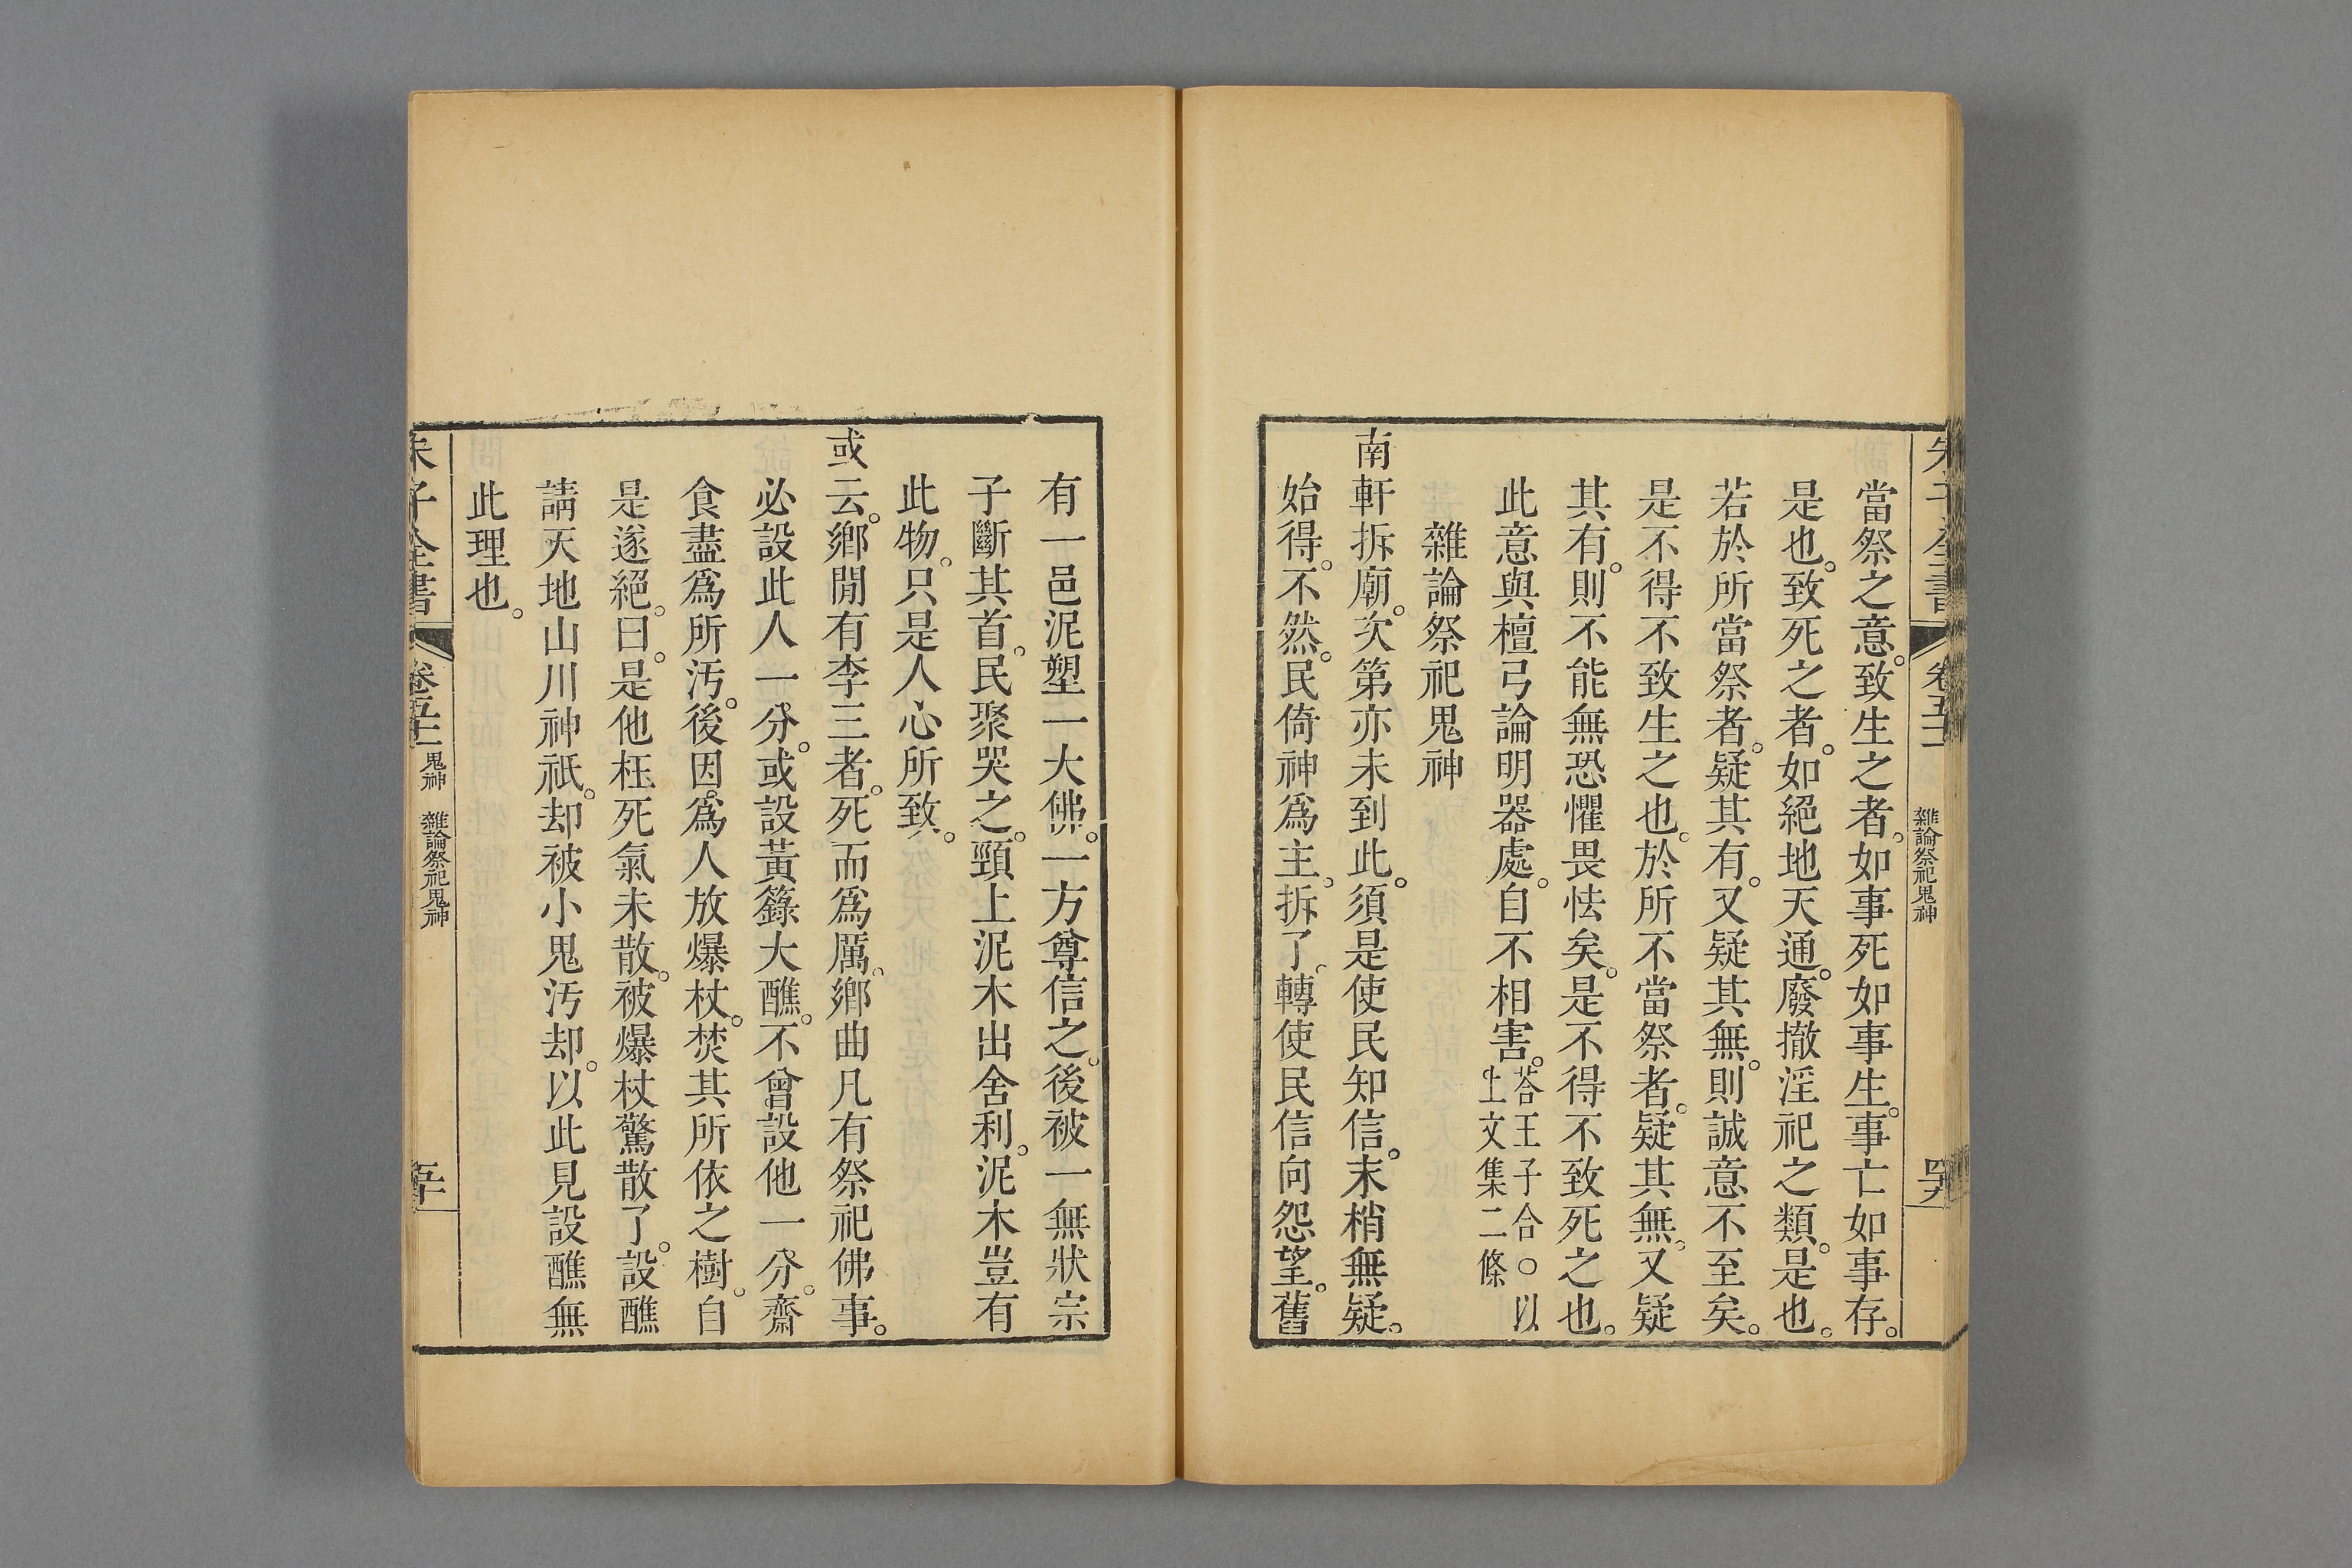 當祭之意。致生之者。如事死如事生。事亡如事存。
是也。致死之者。如絕地天通。廢撤淫祀之類。是也。
若於所當祭者。疑其有。又疑其無。則誠意不至矣。
是不得不致生之也。於所不當祭者。疑其無。又疑
其有。則不能無恐懼畏怯矣。是不得不致死之也。
此意與檀弓論明器處。自不相害。
荅王子合○以
上文集二條
雜論祭祀鬼神
南軒拆廟。次第亦未到此。須是使民知信。末梢無疑。
始得。不然。民倚神爲主。拆了。轉使民信向怨望。舊
有一邑泥塑一大佛。一方尊信之。後被一無狀宗
子斷其首。民聚哭之。頸上泥木出舍利。泥木豈有
此物。只是人心所致。
或云。鄉閒有李三者。死而爲厲。鄉曲凡有祭祀佛事。
必設此人一分。或設黃籙大醮。不曾設他一分。齋
食盡爲所汚。後因爲人放爆杖。焚其所依之樹。自
是遂絕。曰。是他枉死氣未散。被爆杖驚散了。設醮
請天地山川神祇。却被小鬼汚却。以此見設醮無
此理也。
朱子全書
卷五十一
鬼神
雜論祭祀鬼神
五十